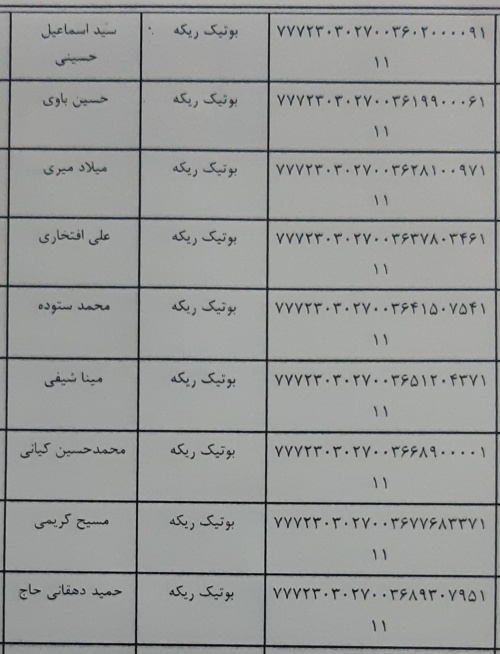 سید اسماعیل حسینی	بوتیک ریکه	۷۷۷۲۳۰۳۰۲۷۰۰۳۶۰۲۰۰۰۰۹۱۱۱
حسین باوی	بوتیک ریکه	۷۷۷۲۳۰۳۰۲۷۰۰۳۶۱۹۹۰۰۰۶۱۱۱
میلاد میری	بوتیک ریکه	۷۷۷۲۳۰۳۰۲۷۰۰۳۶۲۸۱۰۰۹۷۱۱۱
علی افتخاری	بوتیک ریکه	۷۷۷۲۳۰۳۰۲۷۰۰۳۶۳۷۸۰۳۴۶۱۱۱
محمد ستوده	بوتیک ریکه	۷۷۷۲۳۰۳۰۲۷۰۰۳۶۴۱۵۰۷۵۴۱۱۱
مینا شیفی	بوتیک ریکه	۷۷۷۲۳۰۳۰۲۷۰۰۳۶۵۱۲۰۴۳۷۱۱۱
محمدحسین کیانی	بوتیک ریکه	۷۷۷۲۳۰۳۰۲۷۰۰۳۶۶۸۹۰۰۰۰۱۱۱
مسیح کریمی	بوتیک ریکه	۷۷۷۲۳۰۳۰۲۷۰۰۳۶۷۷۶۸۳۳۷۱۱۱
حمید دهقانی حاج	بوتیک ریکه	۷۷۷۲۳۰۳۰۲۷۰۰۳۶۸۹۳۰۷۹۵۱۱۱